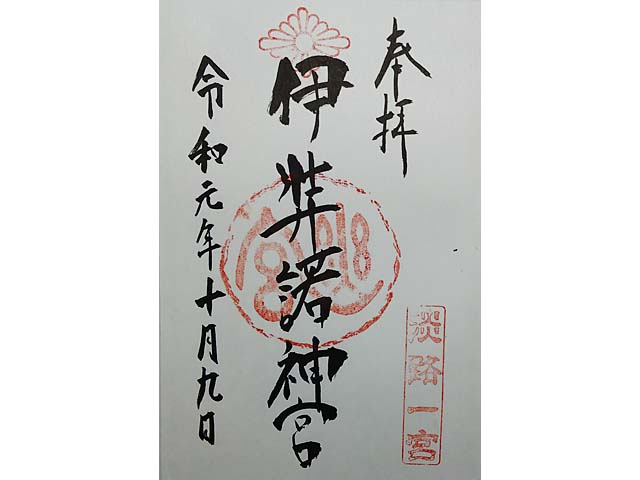 奉拝
淡路一宮
伊弉諾神宮
令和元年十月九日